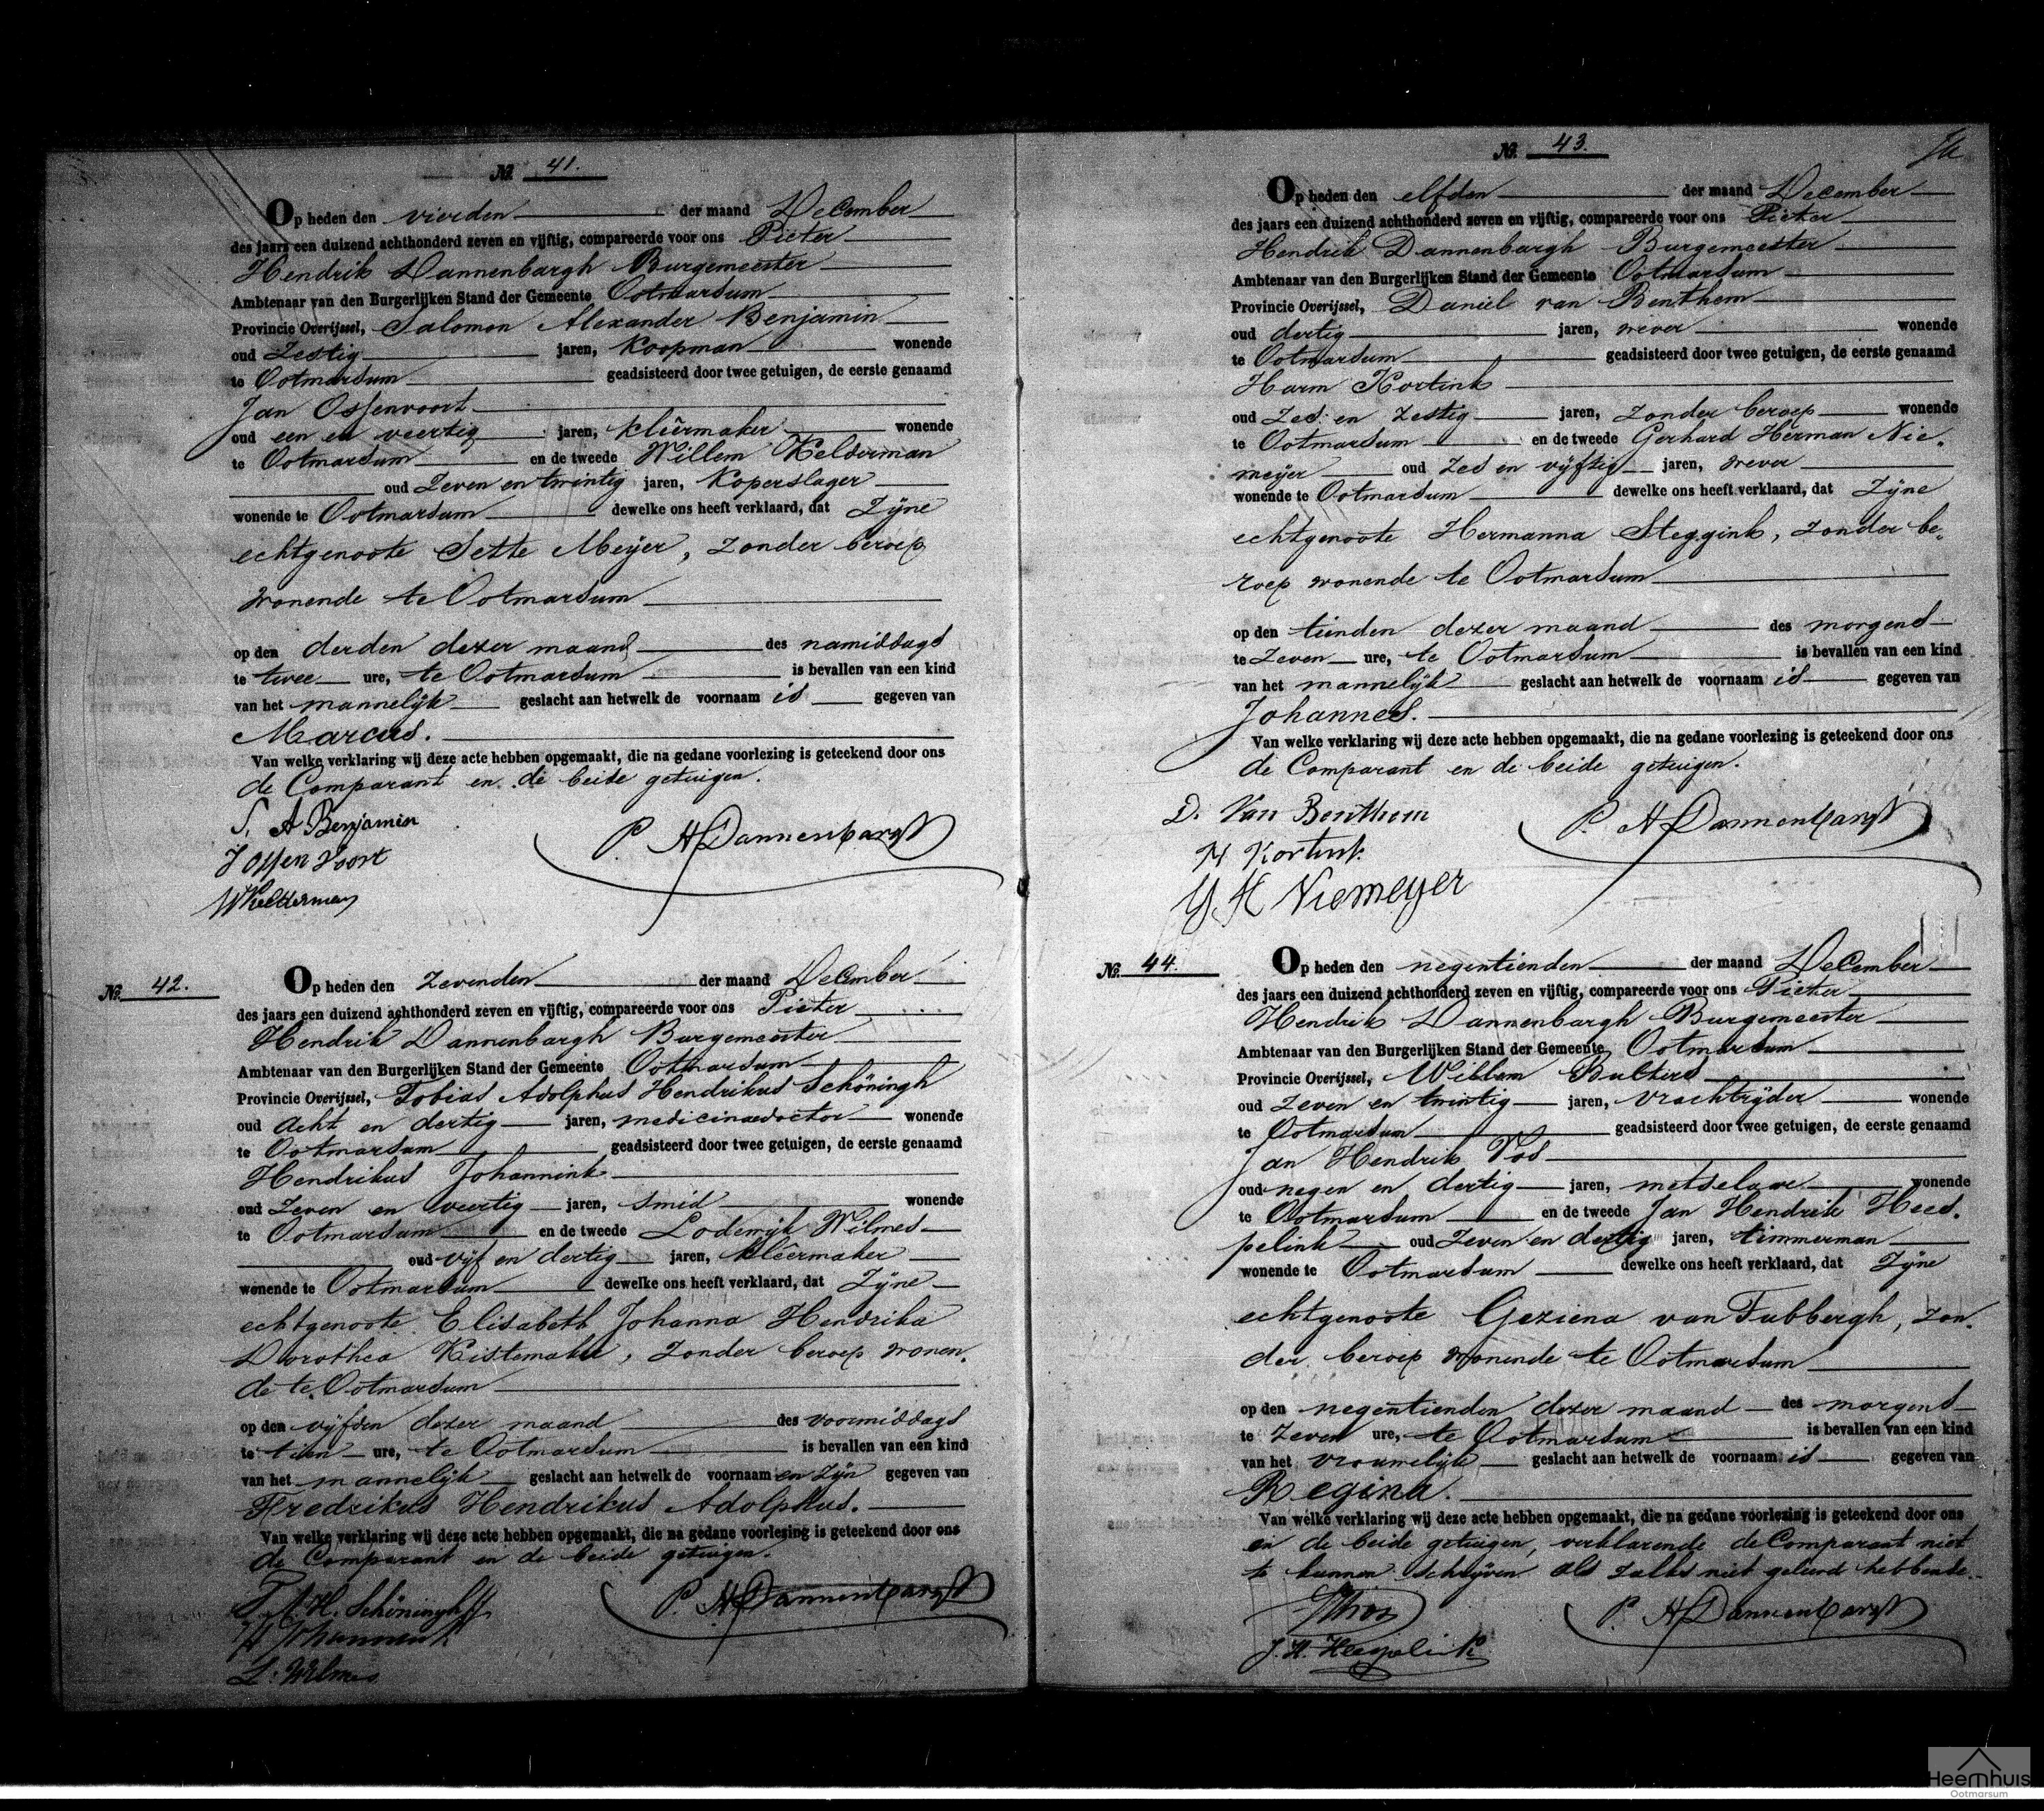 № 41.
Op heden den vierden der maand December
des jaars een duizend achthonderd zeven en vijftig, compareerde voor ons Pieter
Hendrik Dannenbargh Burgemeester
Ambtenaar van den Burgerlijken Stand der Gemeente Ootmarsum
Provincie Overijssel, Salomon Alexander Benjamin
oud Zestig jaren, Koopman wonende
te Ootmarsum geadsisteerd door twee getuigen, de eerste genaamd
Jan Ossenvoort
oud een en veertig jaren, kleêrmaker wonende
te Ootmarsum en de tweede Willem Kelderman
oud Zeven en twintig jaren, Koperslager
wonende te Ootmarsum dewelke ons heeft verklaard, dat Zÿne
echtgenoote Sette Meÿer, zonder beroep
wonende te Ootmarsum
op den derden dezer maand des namiddags
te twee ure, te Ootmarsum is bevallen van een kind
van het mannelÿk geslacht aan hetwelk de voornaam is gegeven van
Marcus.
Van welke verklaring wij deze acte hebben opgemaakt, die na gedane voorlezing is geteekend door ons
de Comparant en de beide getuigen.
S. A Benjamin
J Ossenvoort
P. H Dannenbargh
W Kelderman
№ 42.
Op heden den zevenden der maand December
des jaars een duizend achthonderd zeven en vijftig, compareerde voor ons Pieter
Hendrik Dannenbargh Burgemeester
Ambtenaar van den Burgerlijken Stand der Gemeente Ootmarsum
Provincie Overijssel, Tobias Adolphus Hendrikus Schöningh
oud Acht en dertig jaren, medicinaedoctor wonende
te Ootmarsum geadsisteerd door twee getuigen, de eerste genaamd
Hendrikus Johannink
oud Zeven en veertig jaren, smid wonende
te Ootmarsum en de tweede Lodewÿk Wilmes
oud vÿf en dertig jaren, kleêrmaker
wonende te Ootmarsum dewelke ons heeft verklaard, dat Zÿne
echtgenoote Elisabeth Johanna Hendrika
Dorothea Kistemaker, zonder beroep wonen„
de te Ootmarsum
op den vÿfden dezer maand des voormiddags
te tien ure, te Ootmarsum is bevallen van een kind
van het mannelÿk geslacht aan hetwelk de voornaam en zÿn gegeven van
Fredrikus Hendrikus Adolphus.
Van welke verklaring wij deze acte hebben opgemaakt, die na gedane voorlezing is geteekend door ons
de Comparant en de beide getuigen.
T. A. H. Schöningh
P. H Dannenbargh
H Johannink
L. Wilmes
№ 43.
Op heden den elfden der maand December
des jaars een duizend achthonderd zeven en vijftig, compareerde voor ons Pieter
Hendrik Dannenbargh Burgemeester
Ambtenaar van den Burgerlijken Stand der Gemeente Ootmarsum
Provincie Overijssel, Daniel van Benthem
oud dertig jaren, wever wonende
te Ootmarsum geadsisteerd door twee getuigen, de eerste genaamd
Harm Kortink
oud Zes en zestig jaren, zonder beroep wonende
te Ootmarsum en de tweede Gerhard Herman Nie„
meÿer oud Zes en vÿftig jaren, wever
wonende te Ootmarsum dewelke ons heeft verklaard, dat Zÿne
echtgenoote Hermanna Steggink, zonder be„
roep wonende te Ootmarsum
op den tienden dezer maand des morgens
te Zeven ure, te Ootmarsum is bevallen van een kind
van het mannelÿk geslacht aan hetwelk de voornaam is gegeven van
Johannes.
Van welke verklaring wij deze acte hebben opgemaakt, die na gedane voorlezing is geteekend door ons
de Comparant en de beide getuigen.
D. Van Benthem
P. H Dannenbargh
H Kortink
G H Niemeyer
№ 44.
Op heden den negentienden der maand December
des jaars een duizend achthonderd zeven en vijftig, compareerde voor ons Pieter
Hendrik Dannenbargh Burgemeester
Ambtenaar van den Burgerlijken Stand der Gemeente Ootmarsum
Provincie Overijssel, Willem Bulters
oud Zeven en twintig jaren, Vrachtrÿder wonende
te Ootmarsum geadsisteerd door twee getuigen, de eerste genaamd
Jan Hendrik Vos
oud negen en dertig jaren, metselaar wonende
te Ootmarsum en de tweede Jan Hendrik Hees„
pelink oud Zeven en dertig jaren, timmerman
wonende te Ootmarsum dewelke ons heeft verklaard, dat Zÿne
echtgenoote Geziena van Tubbergh, zon„
der beroep wonende te Ootmarsum
op den negentienden dezer maand des morgens
te Zeven ure, te Ootmarsum is bevallen van een kind
van het vrouwelÿk geslacht aan hetwelk de voornaam is gegeven van
Regina.
Van welke verklaring wij deze acte hebben opgemaakt, die na gedane voorlezing is geteekend door ons
en de beide getuigen, verklarende de Comparant niet
te kunnen schrÿven als zulks niet geleerd hebbende.
P. H Dannenbargh
J. H. Heespelink
Heemhuis
Ootmarsum